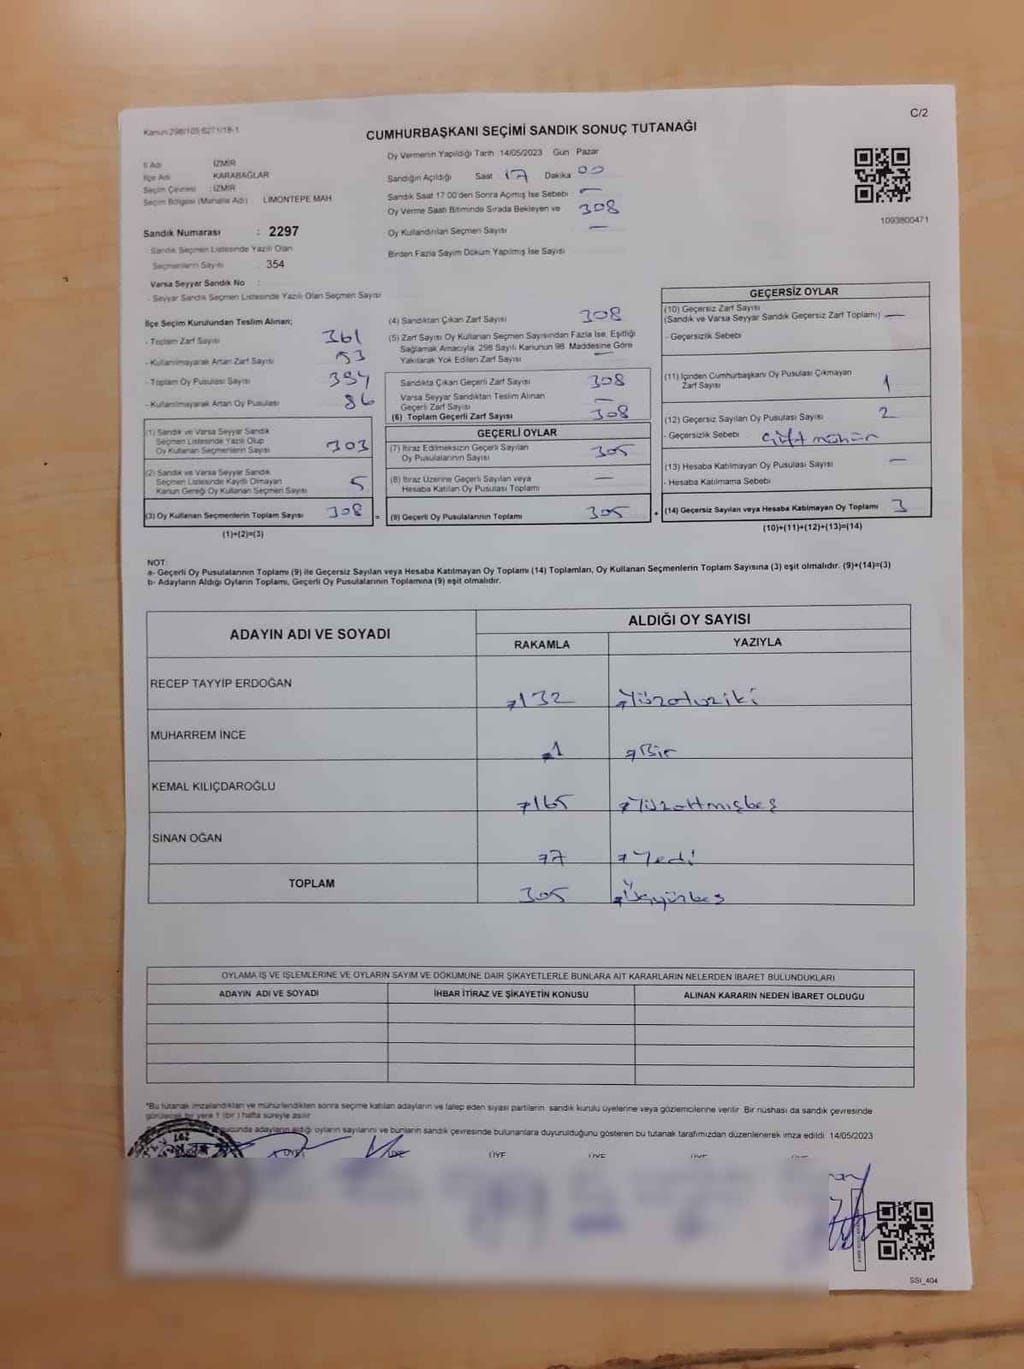 C/2
Kanun:298/105-6271/18-1
CUMHURBAŞKANI SEÇİMİ SANDIK SONUÇ TUTANAĞI
İl Adı İZMİR
İlçe Adı KARABAĞLAR
Seçim Çevresi : İZMİR
Seçim Bölgesi (Mahalle Adı) LİMONTEPE MAH
Sandık Numarası : 2297
- Sandık Seçmen Listesinde Yazılı Olan
Seçmenlerin Sayısı : 354
Varsa Seyyar Sandık No :
- Seyyar Sandık Seçmen Listesinde Yazılı Olan Seçmen Sayısı
Oy Vermenin Yapıldığı Tarih 14/05/2023 Gün Pazar
Sandığın Açıldığı Saat 17 Dakika 00
Sandık Saat 17:00'den Sonra Açılmış İse Sebebi —
Oy Verme Saati Bitiminde Sırada Bekleyen ve 308
Oy Kullandırılan Seçmen Sayısı —
Birden Fazla Sayım Döküm Yapılmış İse Sayısı
1093800471
İlçe Seçim Kurulundan Teslim Alınan;
- Toplam Zarf Sayısı 361
- Kullanılmayarak Artan Zarf Sayısı 53
- Toplam Oy Pusulası Sayısı 394
- Kullanılmayarak Artan Oy Pusulası 86
(1) Sandık ve Varsa Seyyar Sandık
Seçmen Listesinde Yazılı Olup
Oy Kullanan Seçmenlerin Sayısı 303
(2) Sandık ve Varsa Seyyar Sandık
Seçmen Listesinde Kayıtlı Olmayan
Kanun Gereği Oy Kullanan Seçmen Sayısı 5
(3) Oy Kullanan Seçmenlerin Toplam Sayısı 308 =
(1)+(2)=(3)
(4) Sandıktan Çıkan Zarf Sayısı 308
(5) Zarf Sayısı Oy Kullanan Seçmen Sayısından Fazla İse, Eşitliği
Sağlamak Amacıyla 298 Sayılı Kanunun 98. Maddesine Göre
Yakılarak Yok Edilen Zarf Sayısı —
Sandıkta Çıkan Geçerli Zarf Sayısı 308
Varsa Seyyar Sandıktan Teslim Alınan
Geçerli Zarf Sayısı —
(6) Toplam Geçerli Zarf Sayısı 308
GEÇERLİ OYLAR
(7) İtiraz Edilmeksizin Geçerli Sayılan
Oy Pusulalarının Sayısı 305
(8) İtiraz Üzerine Geçerli Sayılan veya
Hesaba Katılan Oy Pusulası Toplamı —
(9) Geçerli Oy Pusulalarının Toplamı 305 +
GEÇERSİZ OYLAR
(10) Geçersiz Zarf Sayısı
(Sandık ve Varsa Seyyar Sandık Geçersiz Zarf Toplamı) —
- Geçersizlik Sebebi
(11) İçinden Cumhurbaşkanı Oy Pusulası Çıkmayan
Zarf Sayısı 1
(12) Geçersiz Sayılan Oy Pusulası Sayısı 2
- Geçersizlik Sebebi Çift mühür
(13) Hesaba Katılmayan Oy Pusulası Sayısı —
- Hesaba Katılmama Sebebi
(14) Geçersiz Sayılan veya Hesaba Katılmayan Oy Toplamı 3
(10)+(11)+(12)+(13)=(14)
NOT:
a- Geçerli Oy Pusulalarının Toplamı (9) ile Geçersiz Sayılan veya Hesaba Katılmayan Oy Toplamı (14) Toplamları, Oy Kullanan Seçmenlerin Toplam Sayısına (3) eşit olmalıdır. (9)+(14)=(3)
b- Adayların Aldığı Oyların Toplamı, Geçerli Oy Pusulalarının Toplamına (9) eşit olmalıdır.
ADAYIN ADI VE SOYADI ALDIĞI OY SAYISI
RAKAMLA YAZIYLA
RECEP TAYYİP ERDOĞAN 132 Yüzotuziki
MUHARREM İNCE 1 Bir
KEMAL KILIÇDAROĞLU 165 Yüzatmışbeş
SİNAN OĞAN 7 Yedi
TOPLAM 305 Üçyüzbeş
OYLAMA İŞ VE İŞLEMLERİNE VE OYLARIN SAYIM VE DÖKÜMÜNE DAİR ŞİKAYETLERLE BUNLARA AİT KARARLARIN NELERDEN İBARET BULUNDUKLARI
ADAYIN ADI VE SOYADI İHBAR İTİRAZ VE ŞİKAYETİN KONUSU ALINAN KARARIN NEDEN İBARET OLDUĞU
*Bu tutanak imzalandıktan ve mühürlendikten sonra seçime katılan adayların ve talep eden siyasi partilerin sandık kurulu üyelerine veya gözlemcilerine verilir. Bir nüshası da sandık çevresinde
görülecek bir yere 1 (bir) hafta süreyle asılır
sonucunda adayların aldığı oyların sayılarını ve bunların sandık çevresinde bulunanlara duyurulduğunu gösteren bu tutanak tarafımızdan düzenlenerek imza edildi. 14/05/2023
ÜYE ÜYE ÜYE
SSI_404